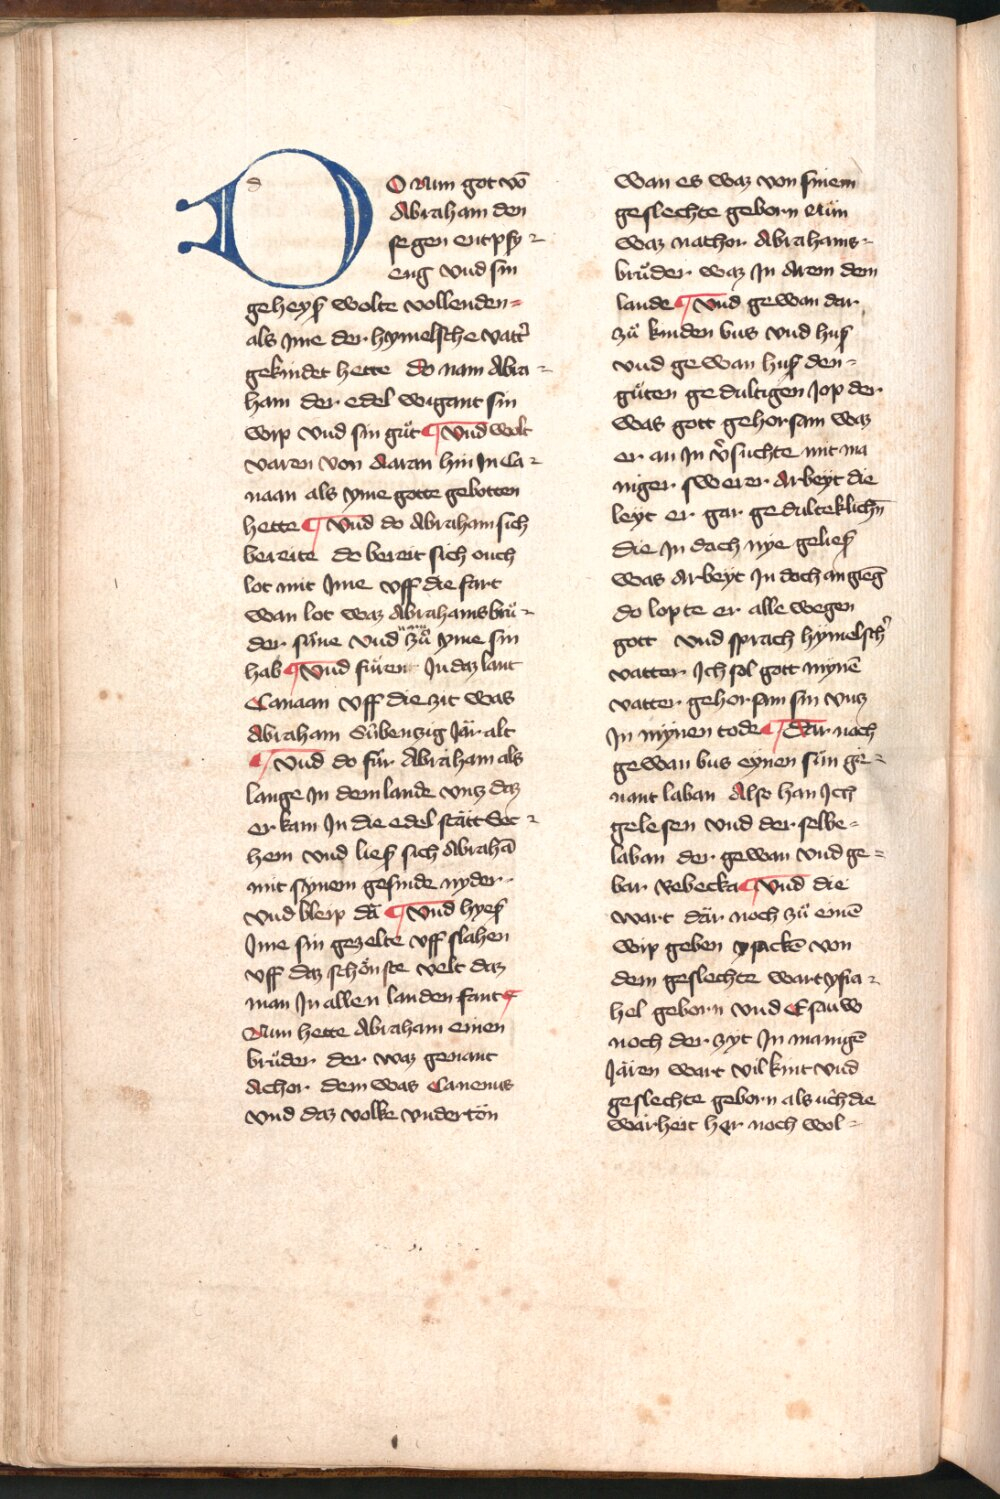 DO Num got vō
Abraham den
segen entpfy⸗
eng vnd sin
geheyß wolte vollenden⸗
als Jme der hymelsche vatt̉
gekindet hette Do nam Abra⸗
ham der edel wigant sin
wip vnd sin guͤt ¶ Vnd wolt
varen von Aaran hin Jn Ca⸗
naan als yme gotte gebotten
hette ¶ Vnd do Abraham sich
bereite do bereit sich ouch
lot mit Jme vff die fart
wan lot waz Abrahams bruͦ⸗
der suͤne vnd zuͦ yme sin
hab ¶ Vnd fuͤren Jn daz lant
Canaan vff die zit was
Abraham Sübenzig Jär alt
¶ Vnd do fuͤr Abraham als
lange Jn dem lande vntz daz
er kam Jn die edel stätt Sec⸗
hem vnd ließ sich Abrahā
mit synem gesinde nyder
vnd bleip dā ¶ Vnd hyeß
Jme sin gezelte vff slahen
vff daz schönste velt daz
man Jn allen landen fant ¶
Num hette Abraham einen
bruͦder der waz genant
Achor dem was Canenus
vnd daz volke vndertön
wan es waz von sinem
geslechte geborn Nün
waz nathor Abrahams⸗
bruͦder waz Jn Arem dem
lande ¶ Vnd gewan dar
zuͦ kinden bus vnd huß
vnd gewan huß den⸗
guͦten gedultigen Jop der
was gott gehorsam waz
er an Jn v̉suchte mit ma
niger swerer Arbeyt die
leyt er gar gedulteklichn̄
die Jn dach nye geließ
was Arbeyt Jn doch angieḡ
do lopte er alle wegen
gott vnd sprach hymelsch̉
vatter Jch sol gott mynē
vatter gehorsam sin vntz
Jn mynen tode ¶ Dar nach
gewan bus eynen sün ge⸗
nant laban Also han Jch
gelesen vnd der selbe⸗
laban der gewan vnd ge⸗
bar Rebecka ¶ Vnd die
wart där noch zuͦ einē
wip geben ysackē von
dem geslechte wart ysra⸗
hel geborn vnd Esauw
noch der zyt Jn manigē
Jären wart vil kint vnd
geslechte geborn als üch die
warheit her noch wol⸗